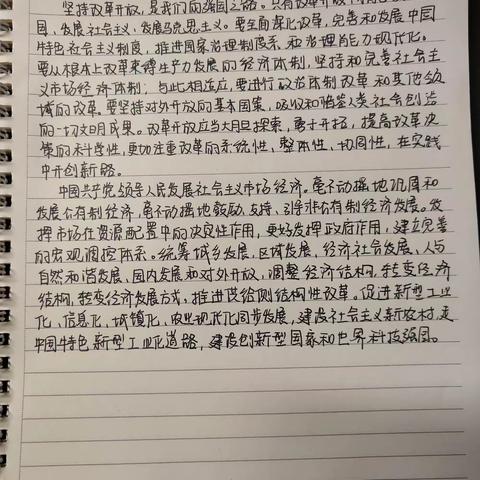 坚持改革开放,是我们的强国之路。只有改革开放,
国、发展社会主义、发展马克思主义。要全面深化改革,完善和发展中国
特色社会主义制度,推进国家治理制度系和治理能力现代化。
要从根本上改革束缚生产力发展的经济体制,坚持和完善社会主
义市场经济体制;与此相适应,要进行政治体制改革和其他领
域的改革。要坚持对外开放的基本国策,吸收和借鉴人类社会创造
的一切文明成果。改革开放应当大胆探索,勇于开拓,提高改革决
策的科学性,更加注重改革的系统性、整体性、协同性,在实践
中开创新路。
中国共产党领导人民发展社会主义市场经济。毫不动摇地巩固和
发展公有制经济,毫不动摇地鼓励、支持、引导非公有制经济发展。发
挥市场在资源配置中的决定性作用,更好发挥政府作用,建立完善
的宏观调控体系。统筹城乡发展、区域发展、经济社会发展、人与
自然和谐发展、国内发展和对外开放,调整经济结构,转变经济
结构,转变经济发展方式,推进供给侧结构性改革。促进新型工业
化、信息化、城镇化、农业现代化同步发展,建设社会主义新农村,走
中国特色新型工业化道路,建设创新型国家和世界科技强国。